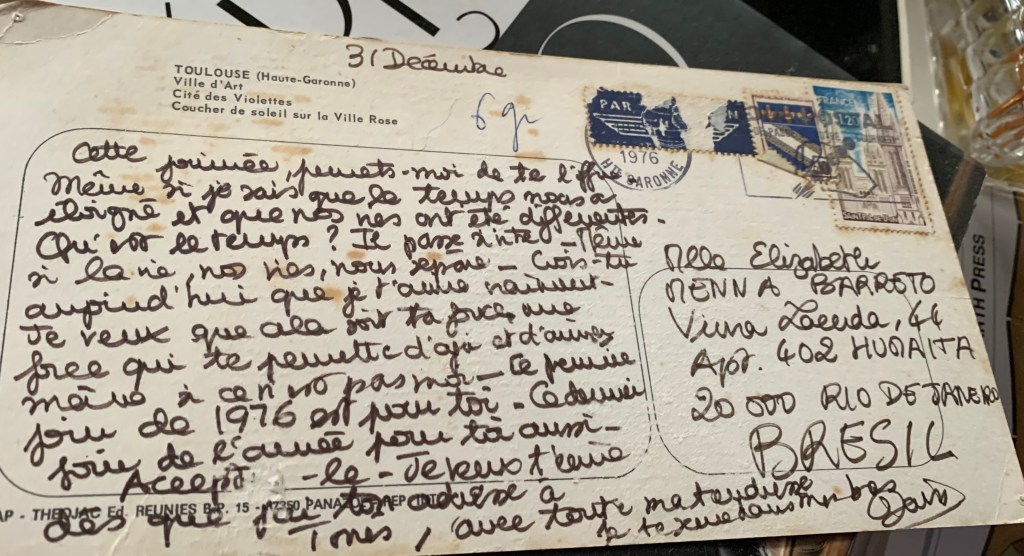 31 Décembre
TOULOUSE (Haute-Garonne)
Ville d'Art
Cité des Violettes
Coucher de soleil sur la Ville Rose
6 gr
PAR
1976
HTE GARONNE
FRANCE
Cette journée, permets-moi de te l'offrir
Même si je sais que le temps nous a
éloigné et que nos vies ont été différentes.
le temps? Je passe - Même
si la vie, nos vies, nous sépare - Crois-tu
aujourd'hui que je t'aime vraiment -
Je veux que cela soit ta force, une
force qui te permette d'agir et d'aimer
même si ce n'est pas moi - Ce premier
jour de 1976 est pour toi - Ce dernier
jour de l'année pour toi aussi -
Accept -le - Je veux t'
dès que j'ai ton adresse à
, avec toute ma tendresse
je te serre dans mes bras
AP - THEOJAC Ed. REUNIES B.P. 15 - 87350 PANAZOL
Mlle Elizabeth
MENNA BARRETO
Viuva Lacerda, 44
Apt. 402 HUMAITA
20 000 RIO DE JANEIRO
BRESIL
TH PRESS